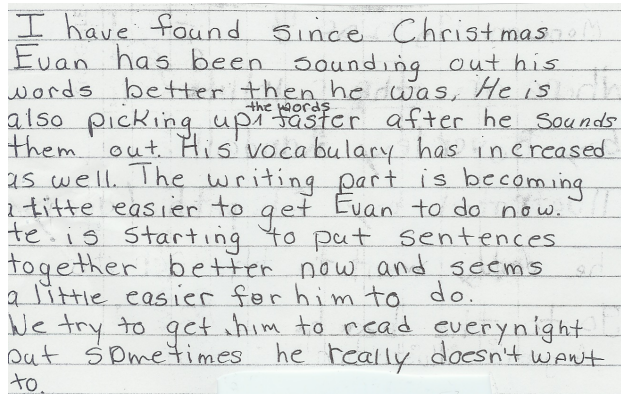 I have found since Christmas
Evan has been sounding out his
words better then he was. He is
also picking up the words faster after he sounds
them out. His vocabulary has increased
as well. The writing part is becoming
a little easier to get Evan to do now.
He is starting to put sentences
together better now and seems
a little easier for him to do.
We try to get him to read everynight
but sometimes he really doesn't want
to.